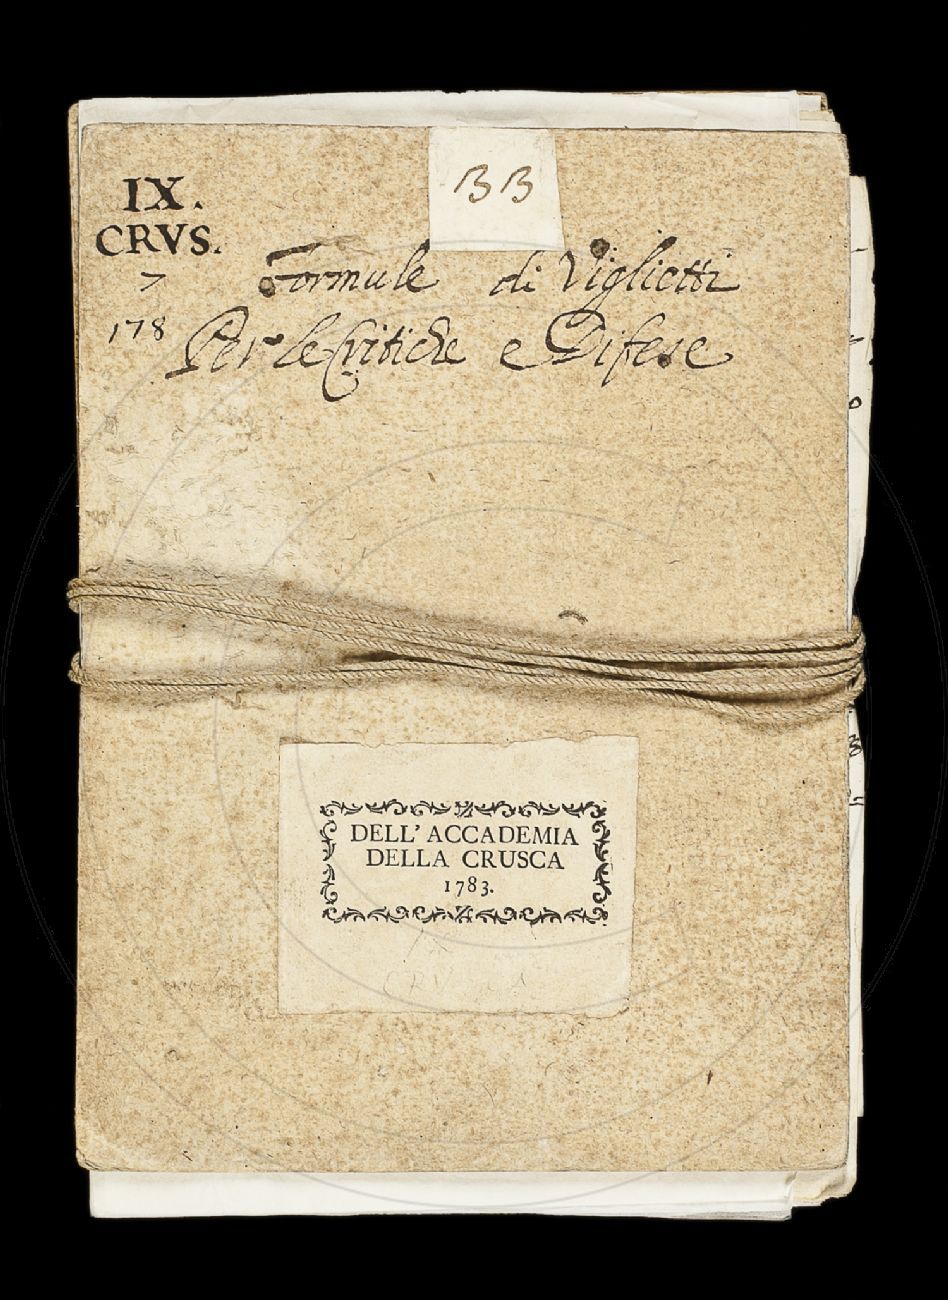 33
IX.
CRVS.
7
178
Formule di Viglietti
Per le Critiche e Difese
DELL' ACCADEMIA
DELLA CRUSCA
1783.